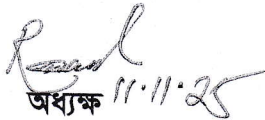 অধ্যক্ষ 11.11.25